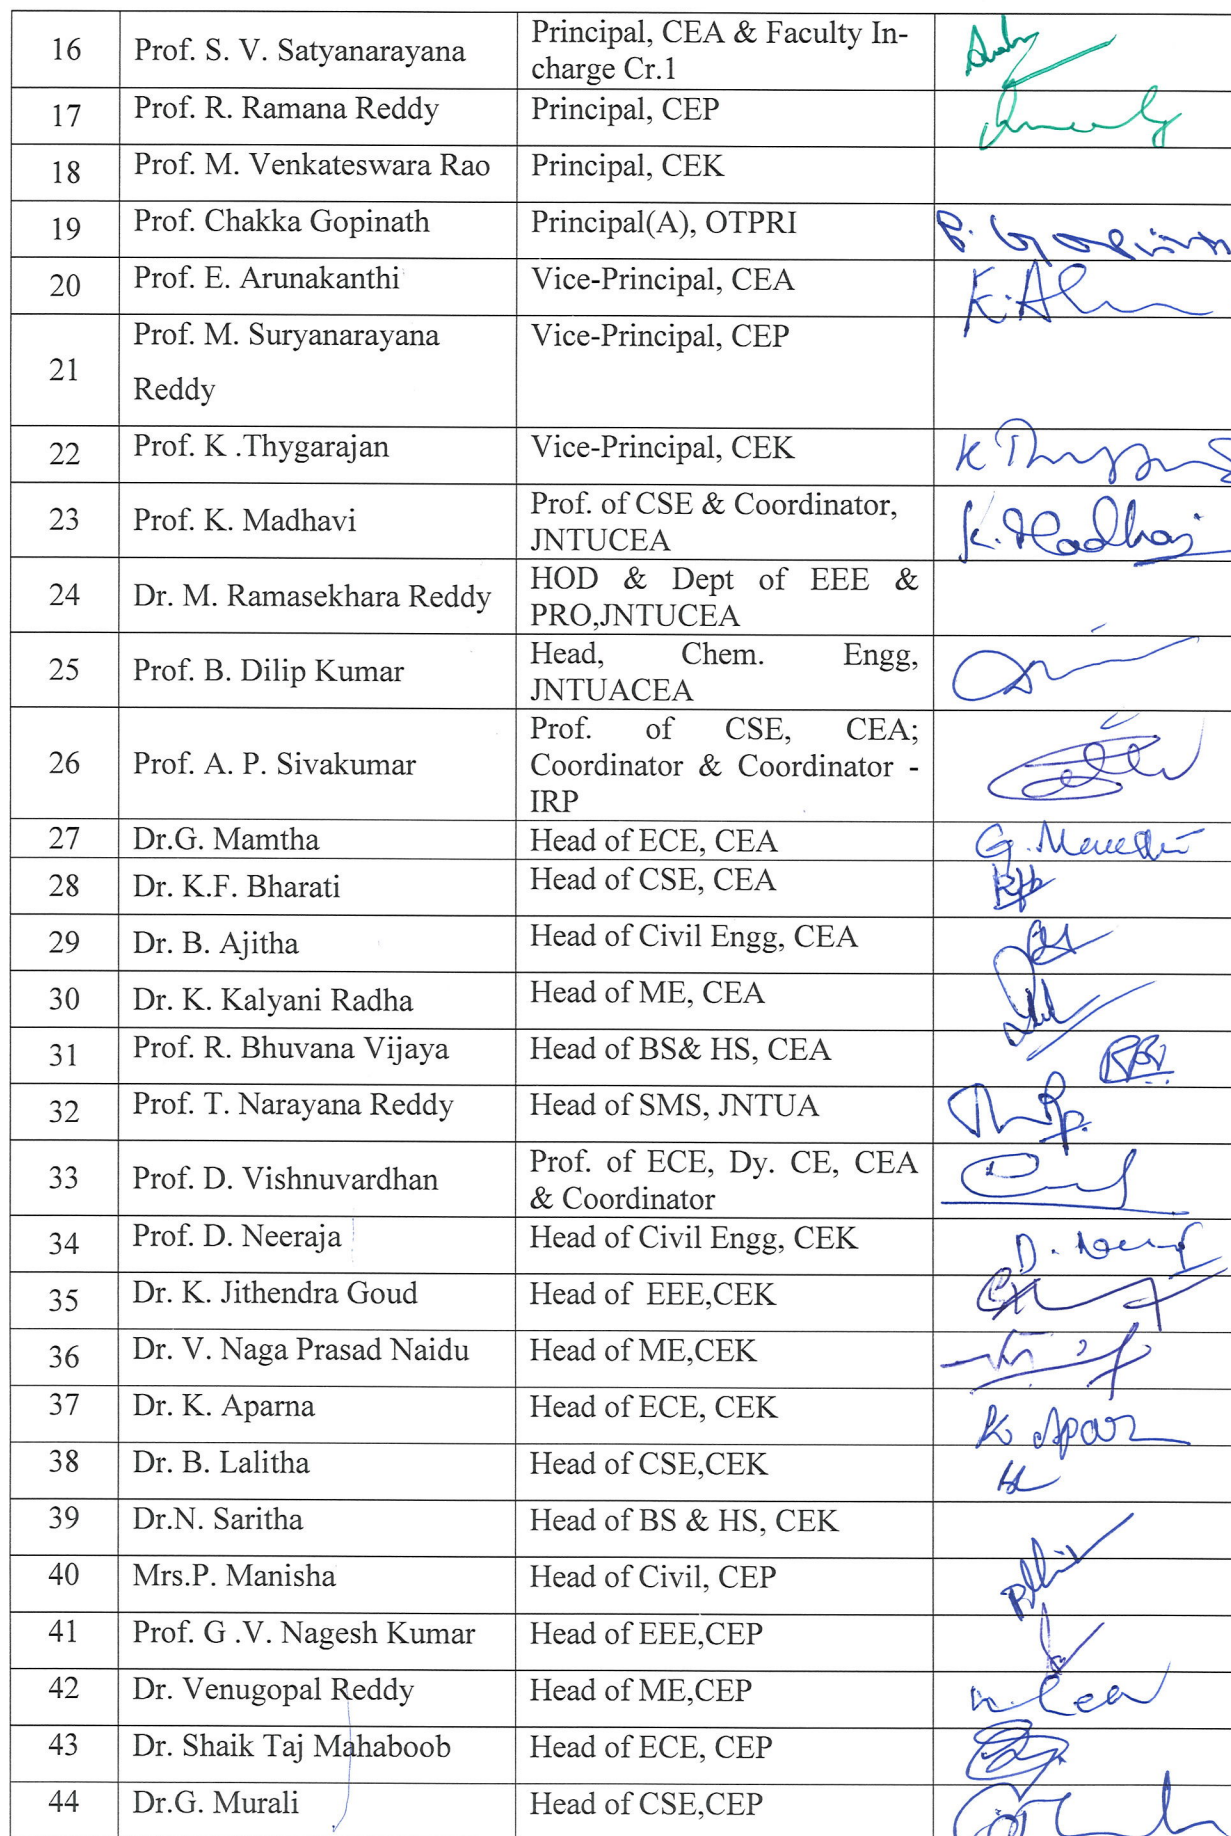 16 Prof. S. V. Satyanarayana Principal, CEA & Faculty In-
charge Cr.1
17 Prof. R. Ramana Reddy Principal, CEP
18 Prof. M. Venkateswara Rao Principal, CEK
19 Prof. Chakka Gopinath Principal(A), OTPRI
20 Prof. E. Arunakanthi Vice-Principal, CEA
21 Prof. M. Suryanarayana Vice-Principal, CEP
Reddy
22 Prof. K .Thygarajan Vice-Principal, CEK
23 Prof. K. Madhavi Prof. of CSE & Coordinator, K. Madhavi
JNTUCEA
24 Dr. M. Ramasekhara Reddy HOD & Dept of EEE &
PRO,JNTUCEA
25 Prof. B. Dilip Kumar Head, Chem. Engg,
JNTUACEA
26 Prof. A. P. Sivakumar Prof. of CSE, CEA;
Coordinator & Coordinator -
IRP
27 Dr.G. Mamtha Head of ECE, CEA
28 Dr. K.F. Bharati Head of CSE, CEA
29 Dr. B. Ajitha Head of Civil Engg, CEA
30 Dr. K. Kalyani Radha Head of ME, CEA
31 Prof. R. Bhuvana Vijaya Head of BS& HS, CEA
32 Prof. T. Narayana Reddy Head of SMS, JNTUA
33 Prof. D. Vishnuvardhan Prof. of ECE, Dy. CE, CEA
& Coordinator
34 Prof. D. Neeraja Head of Civil Engg, CEK
35 Dr. K. Jithendra Goud Head of EEE,CEK
36 Dr. V. Naga Prasad Naidu Head of ME,CEK
37 Dr. K. Aparna Head of ECE, CEK
38 Dr. B. Lalitha Head of CSE,CEK
39 Dr.N. Saritha Head of BS & HS, CEK
40 Mrs.P. Manisha Head of Civil, CEP
41 Prof. G .V. Nagesh Kumar Head of EEE,CEP
42 Dr. Venugopal Reddy Head of ME,CEP
43 Dr. Shaik Taj Mahaboob Head of ECE, CEP
44 Dr.G. Murali Head of CSE,CEP